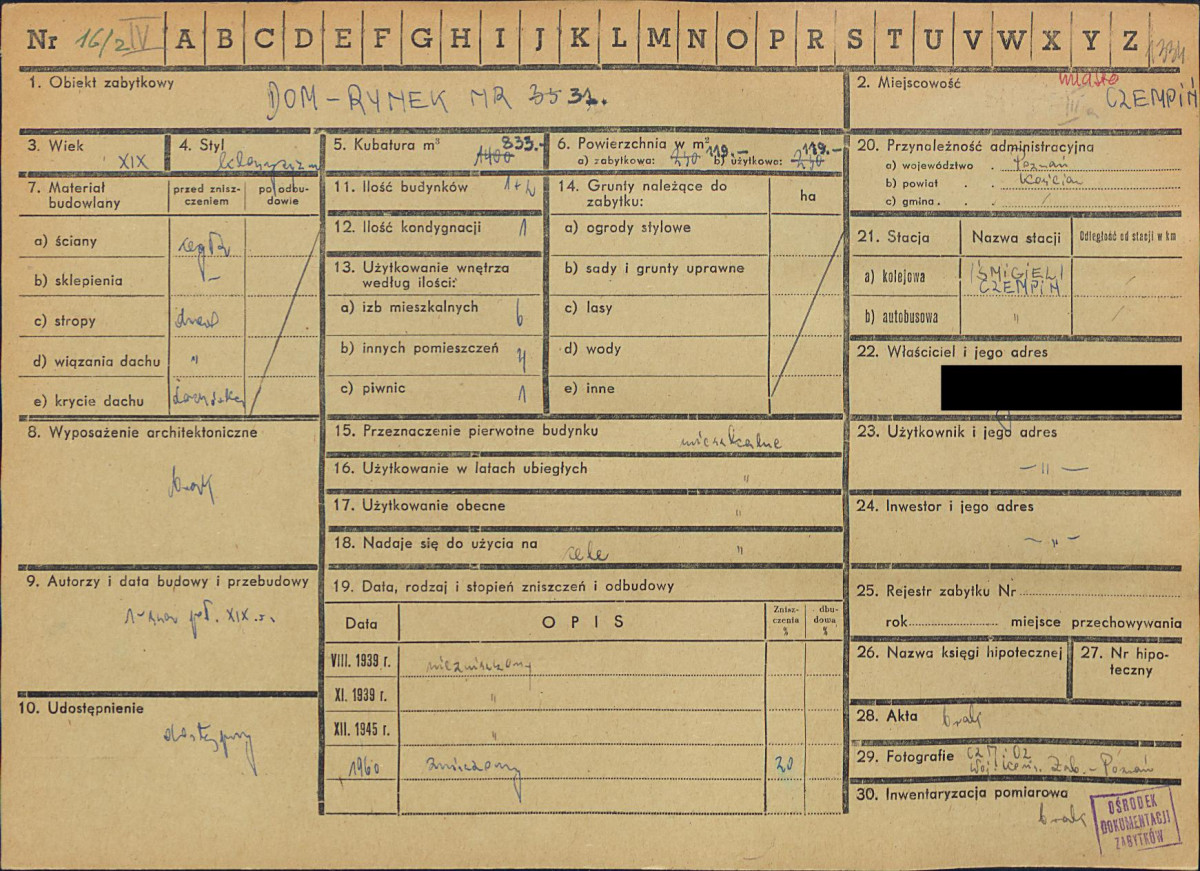 Nr 16/2 IV A B C D E F G H I J K L M N O P R S T U V W X Y Z 1334
1. Obiekt zabytkowy
DOM-RYNEK NR 35 31.
2. Miejscowość
miasto
III a
CZEMPIŃ
3. Wiek
XIX
4. Styl
klasycyzm
5. Kubatura m³
1400 833.-
6. Powierzchnia w m²
a) zabytkowa: 230 119.- b) użytkowa: 230 119.-
20. Przynależność administracyjna
a) województwo . Poznań
b) powiat . . Kościan
c) gmina . . .
7. Materiał budowlany
przed zniszczeniem
po odbudowie
a) ściany cegła
b) sklepienia –
c) stropy drewn
d) wiązania dachu "
e) krycie dachu dachówka
11. Ilość budynków 1+2
12. Ilość kondygnacji 1
13. Użytkowanie wnętrza
według ilości:
a) izb mieszkalnych 6
b) innych pomieszczeń 4
c) piwnic 1
14. Grunty należące do
zabytku:
ha
a) ogrody stylowe
b) sady i grunty uprawne
c) lasy
d) wody
e) inne
21. Stacja Nazwa stacji Odległość od stacji w km
a) kolejowa ŚMIGIEL
CZEMPIŃ
b) autobusowa "
22. Właściciel i jego adres
8. Wyposażenie architektoniczne
brak
15. Przeznaczenie pierwotne budynku mieszkalne
16. Użytkowanie w latach ubiegłych "
17. Użytkowanie obecne "
18. Nadaje się do użycia na cele "
23. Użytkownik i jego adres
– " –
24. Inwestor i jego adres
– " –
9. Autorzy i data budowy i przebudowy
poł. XIX w.
19. Data, rodzaj i stopień zniszczeń i odbudowy
Data OPIS Zniszczenia % dbudowa %
VIII. 1939 r. niezniszczony
XI. 1939 r. "
XII. 1945 r. "
1960 zniszczony 20
25. Rejestr zabytku Nr
rok miejsce przechowywania
26. Nazwa księgi hipotecznej
27. Nr hipoteczny
10. Udostępnienie
dostępny
28. Akta brak
29. Fotografie CZMiOZ
Woj. Kons. Zab. - Poznań
30. Inwentaryzacja pomiarowa
brak
OŚRODEK
DOKUMENTACJI
ZABYTKÓW